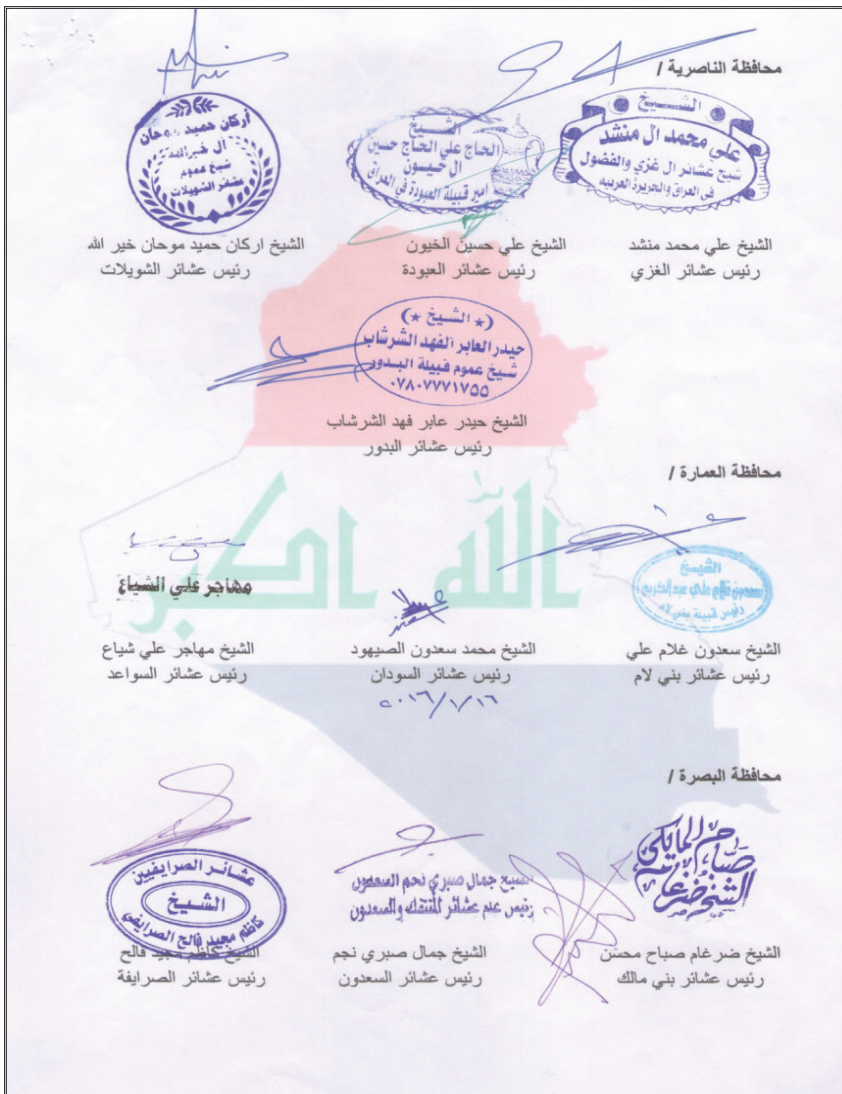 محافظة الناصرية /
الشيخ
علي محمد ال منشد
شيخ عشائر ال غزي والفضول
في العراق والجزيرة العربية
الشيخ
الحاج علي الحاج حسين
ال خيون
امير قبيلة العبودة في العراق
أركان حميد موحان
ال خيرالله
شيخ عموم
عشائر الشويلات
الشيخ علي محمد منشد
رئيس عشائر الغزي
الشيخ علي حسين الخيون
رئيس عشائر العبودة
الشيخ اركان حميد موحان خير الله
رئيس عشائر الشويلات
(★ الشيخ ★)
حيدر العابر الفهد الشرشاب
شيخ عموم قبيلة البدور
٠٧٨٠٧٧٧١٧٥٥
الشيخ حيدر عابر فهد الشرشاب
رئيس عشائر البدور
محافظة العمارة /
الله اكبر
الشيخ
سعدون غلام علي عبدالكريم
رئيس قبيلة بني لام
مهاجر علي الشياع
الشيخ سعدون غلام علي
رئيس عشائر بني لام
الشيخ محمد سعدون الصيهود
رئيس عشائر السودان
٢٠١٦/١/١٦
الشيخ مهاجر علي شياع
رئيس عشائر السواعد
محافظة البصرة /
صباح المالكي
الشيخ ضرغام
الشيخ جمال صبري نجم السعدون
رئيس عام عشائر المنتفك والسعدون
عشائر الصرايفين
الشيخ
كاظم مجيد فالح الصرايفي
الشيخ ضرغام صباح محسن
رئيس عشائر بني مالك
الشيخ جمال صبري نجم
رئيس عشائر السعدون
الشيخ كاظم مجيد فالح
رئيس عشائر الصرايفة